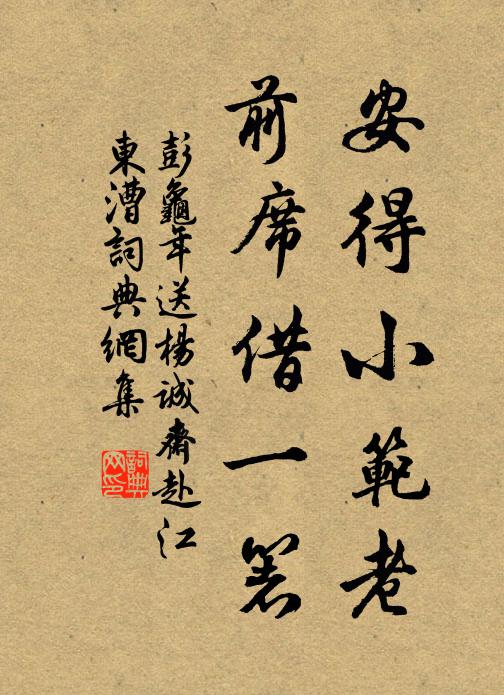 安得小範老
前席借一箸
彭龜年送楊誠齋赴江
東漕詞典網集
詞典
网印